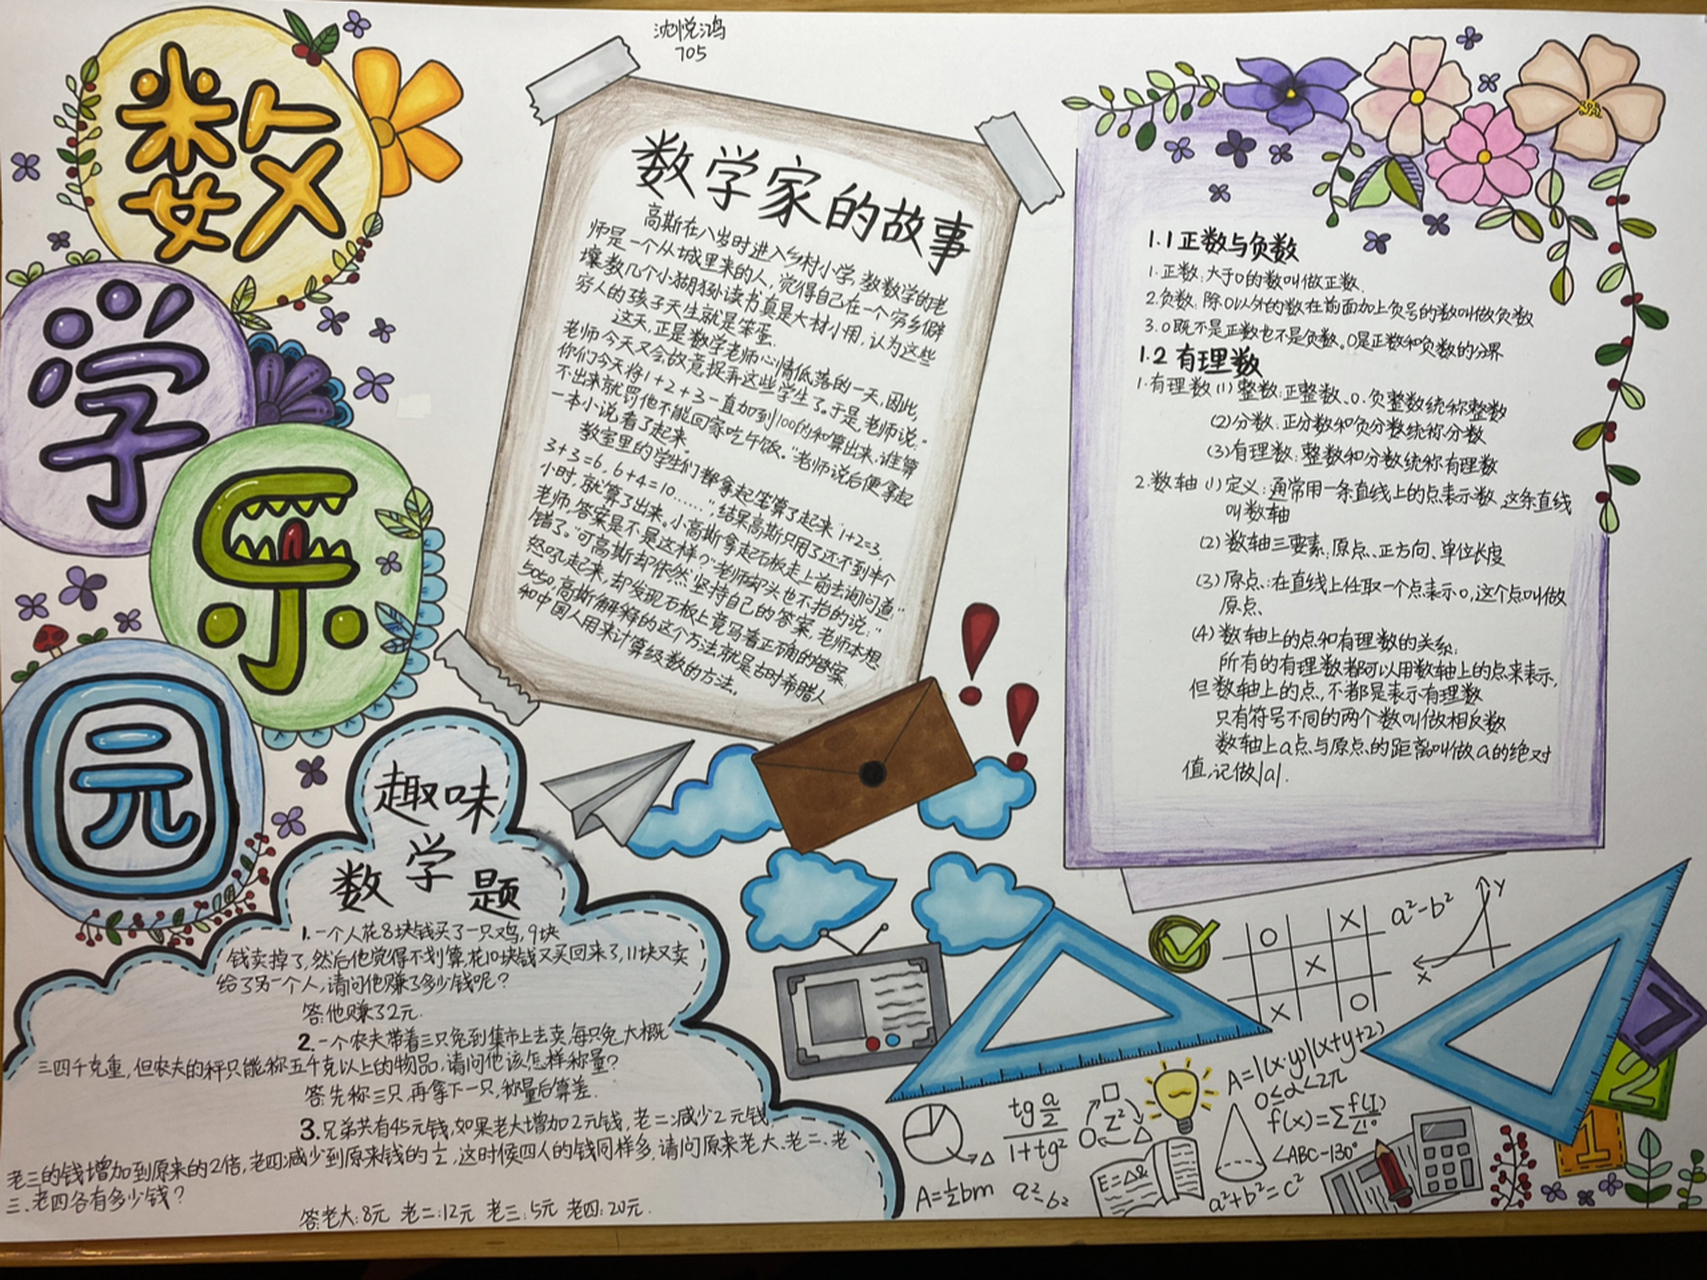 数
学
乐
园
沈悦鸿
705
数学家的故事
高斯在八岁时进入乡村小学,教数学的老
师是一个从城里来的人,觉得自己在一个穷乡僻
壤教几个小猢狲读书真是大材小用,认为这些
穷人的孩子天生就是笨蛋.
这天,正是数学老师心情低落的一天,因此,
老师今天又会故意捉弄这些学生了。于是,老师说:
你们今天将1+2+3一直加到100的和算出来,谁算
不出来就罚他不能回家吃午饭。"老师说后便拿起
一本小说看了起来。
教室里的学生们都拿起笔算了起来"1+2=3,
3+3=6, 6+4=10……",结果高斯只用了还不到半个
小时,就算了出来。小高斯拿起石板走上前去询问道"
老师,答案是不是这样?"老师却头也不抬的说:"
错了。"可高斯却依然坚持自己的答案,老师本想
怒吼起来,却发现石板上竟写着正确的答案:
5050,高斯解释的这个方法就是古时希腊人
和中国人用来计算级数的方法。
1.1 正数与负数
1.正数:大于0的数叫做正数.
2.负数:除0以外的数在前面加上负号的数叫做负数
3.0既不是正数也不是负数。0是正数和负数的分界
1.2 有理数
1.有理数(1)整数:正整数、0.负整数统称整数
(2)分数:正分数和负分数统称分数
(3)有理数:整数和分数统称有理数
2.数轴(1)定义:通常用一条直线上的点表示数,这条直线
叫数轴
(2)数轴三要素:原点、正方向、单位长度
(3)原点:在直线上任取一个点表示0,这个点叫做
原点、
(4)数轴上的点和有理数的关系:
所有的有理数都可以用数轴上的点来表示,
但数轴上的点,不都是表示有理数
只有符号不同的两个数叫做相反数
数轴上a点与原点的距离叫做a的绝对
值,记做|a|.
趣味
数学题
1.一个人花8块钱买了一只鸡,9块
钱卖掉了,然后他觉得不划算,花10块钱又买回来了,11块又卖
给了另一个人,请问他赚了多少钱呢?
答:他赚了2元.
2.一个农夫带着三只兔到集市上去卖,每只兔大概
三四千克重,但农夫的秤只能称五千克以上的物品,请问他该怎样称量?
答:先称三只,再拿下一只,称量后算差.
3.兄弟共有45元钱,如果老大增加2元钱,老二减少2元钱,
老三的钱增加到原来的2倍,老四减少到原来钱的½,这时候四人的钱同样多,请问原来老大、老二、老
三、老四各有多少钱?
答:老大:8元 老二:12元 老三:5元 老四:20元.
O X
X
X O
a²-b²
Y
X
A=|(x·y)|(x+y+2)
0≤α<2π
∠ABC-130°
a²+b²=c²
Z²
E=Δ&
A=½bm
7
2
1